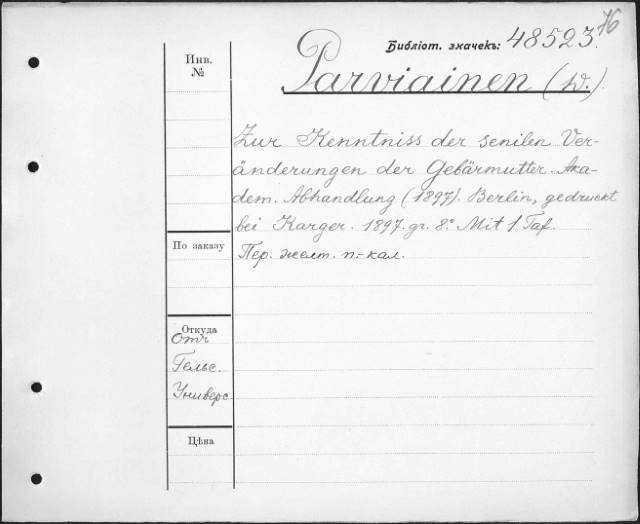 76
Библіот. значекъ: 48523.
Инв.
№
Parviainen (W.).
Zur Kenntniss der senilen Ver-
änderungen der Gebärmutter. Aka-
dem. Abhandlung (1897). Berlin, gedruckt
bei Karger. 1897. gr. 8.° Mit 1 Taf.
По заказу
Пер. желт. п.-кал.
Откуда
Отъ
Гельс.
Универс.
Цѣна